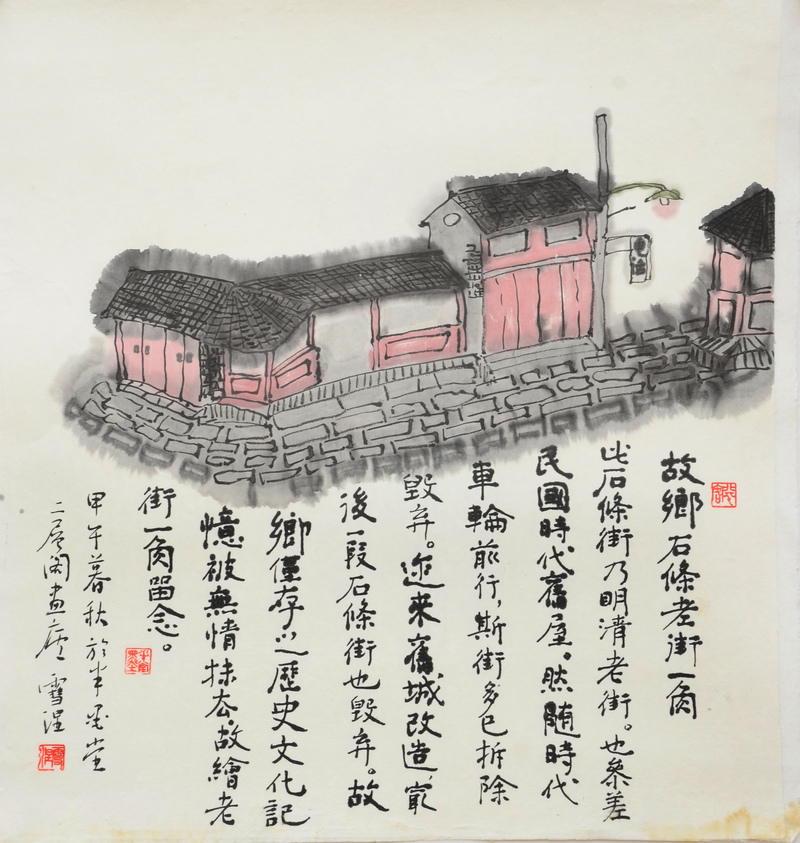 故鄉石條老街一角
此石條街乃明清老街。也參差
民國時代舊屋。然隨時代
車輪前行，斯街多已拆除
毀弃。迩来舊城改造，最
後一段石條街也毀弃。故
鄉僅存之歷史文化記
憶被無情抹去，故繪老
街一角留念。
甲午暮秋於半堂
二层阁画 雪